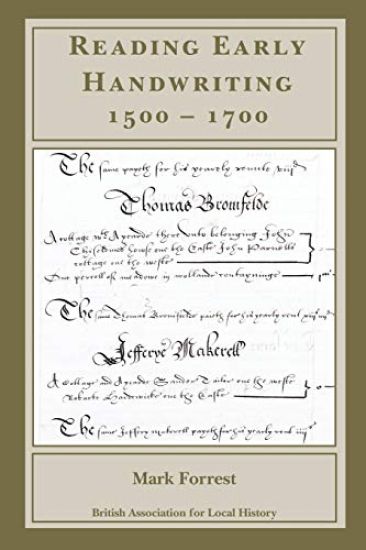 READING EARLY
HANDWRITING
1500 – 1700
The same payeth for his yearely rente viijd
Thomas Bromfelde
A cottage wt A yearde there unto belonging John
howse one the Easte John Parnolls
cottage one the weste
One percell of meadowe in wollande contayninge
The same Thomas Bromfielde paieth for his yearly rent
Jefferye Makerell
A Cottage and A yearde Sander Tailer one the weste
Roberte one the Easte
The same Jeffery makerell payeth for his yearly rent iiijd
Mark Forrest
British Association for Local History